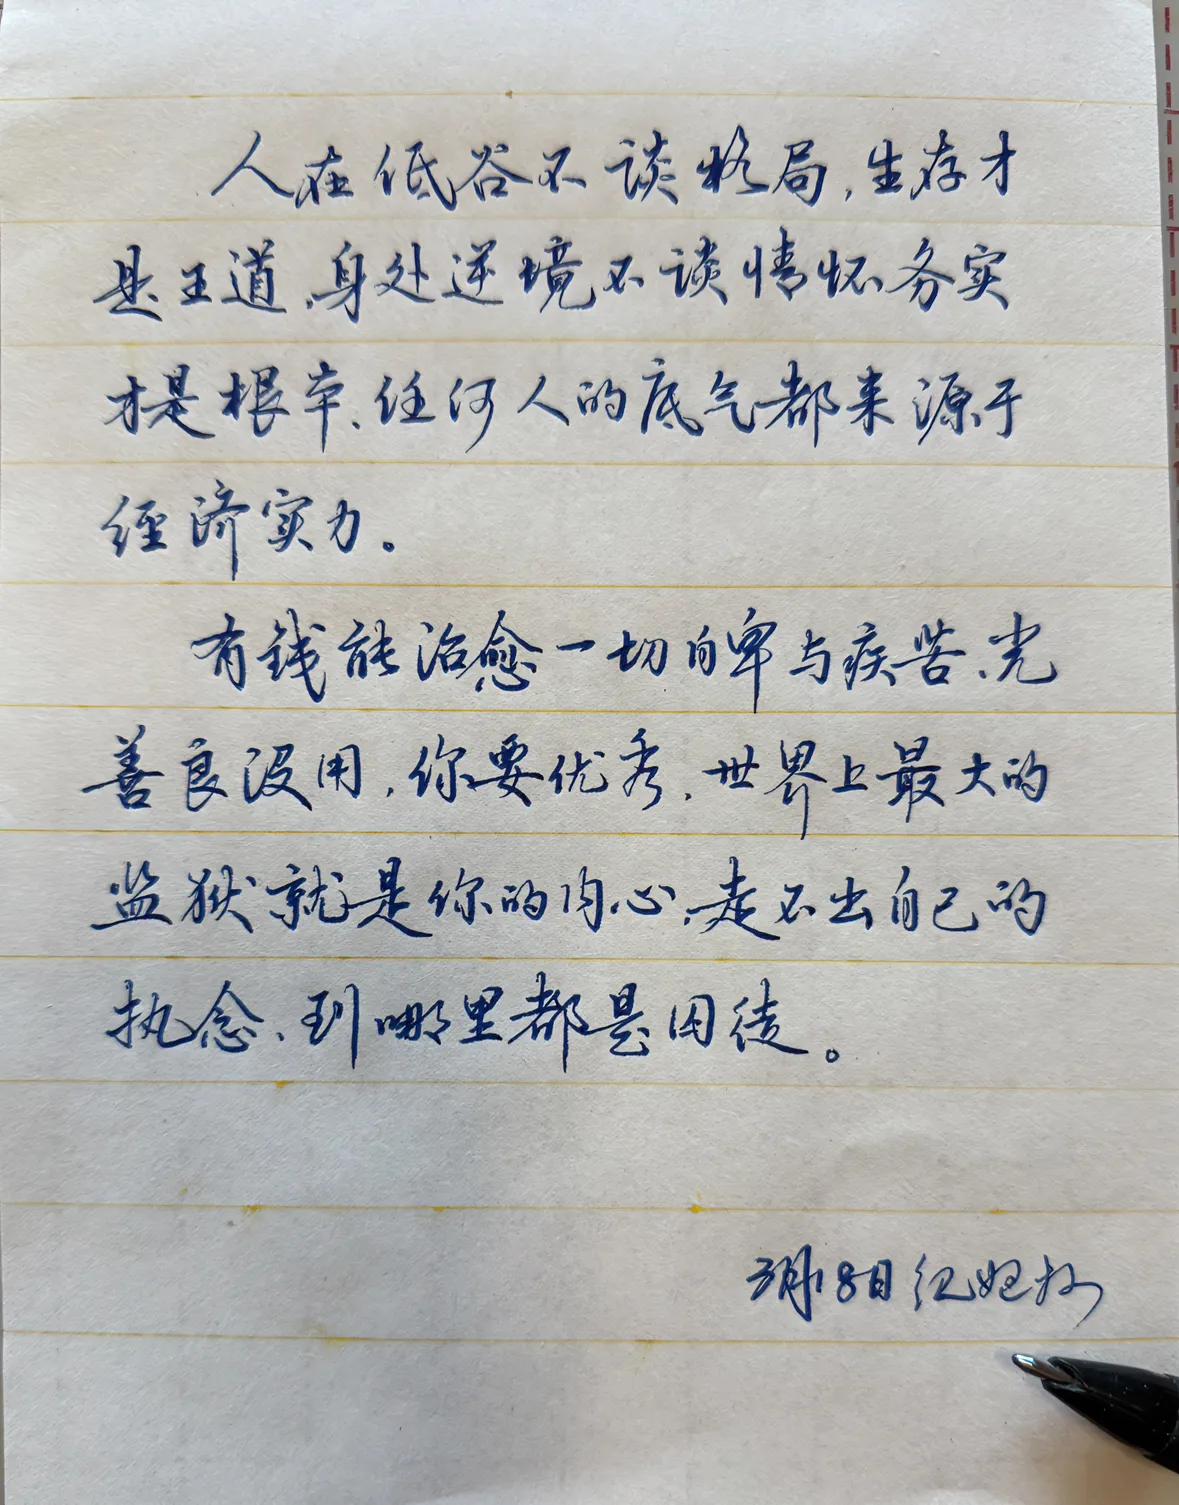 人在低谷不谈格局，生存才
是王道，身处逆境不谈情怀务实
才是根本、任何人的底气都来源于
经济实力。
有钱能治愈一切自卑与疾苦、光
善良没用，你要优秀，世界上最大的
监狱就是你的内心，走不出自己的
执念、到哪里都是囚徒。
月18日